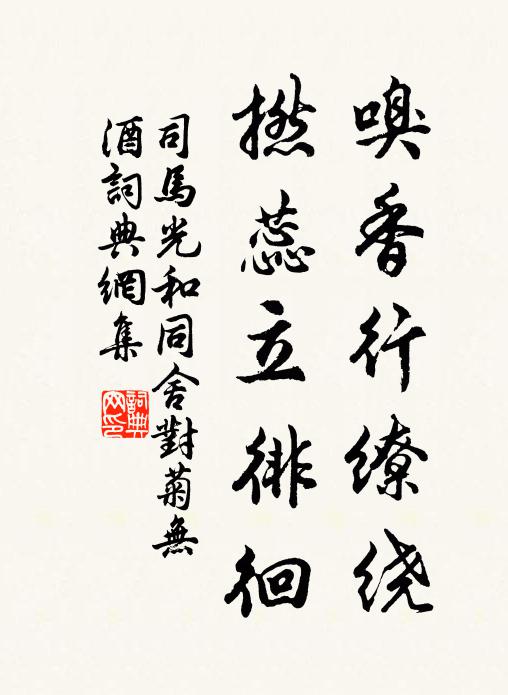 嗅香行缭绕
撚蕊立徘徊
司馬光和同舍對菊無
酒詞典網集
詞典網印